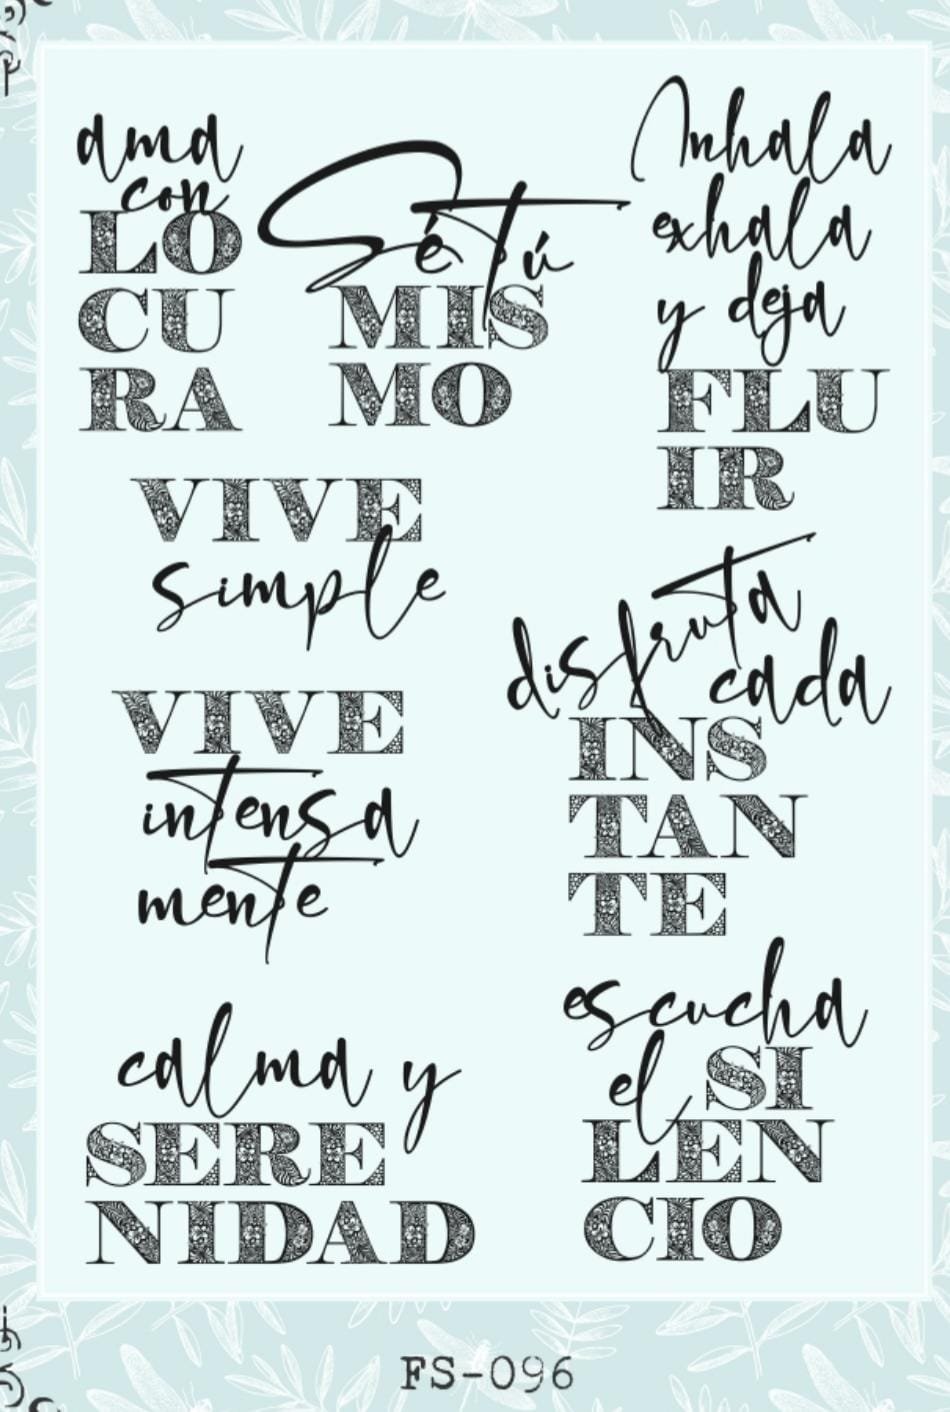 ama
con
LO
CU
RA
Sé tú
MIS
MO
Inhala
exhala
y deja
FLU
IR
VIVE
simple
disfruta
cada
INS
TAN
TE
VIVE
intensa
mente
escucha
el SI
LEN
CIO
calma y
SERE
NIDAD
FS-096